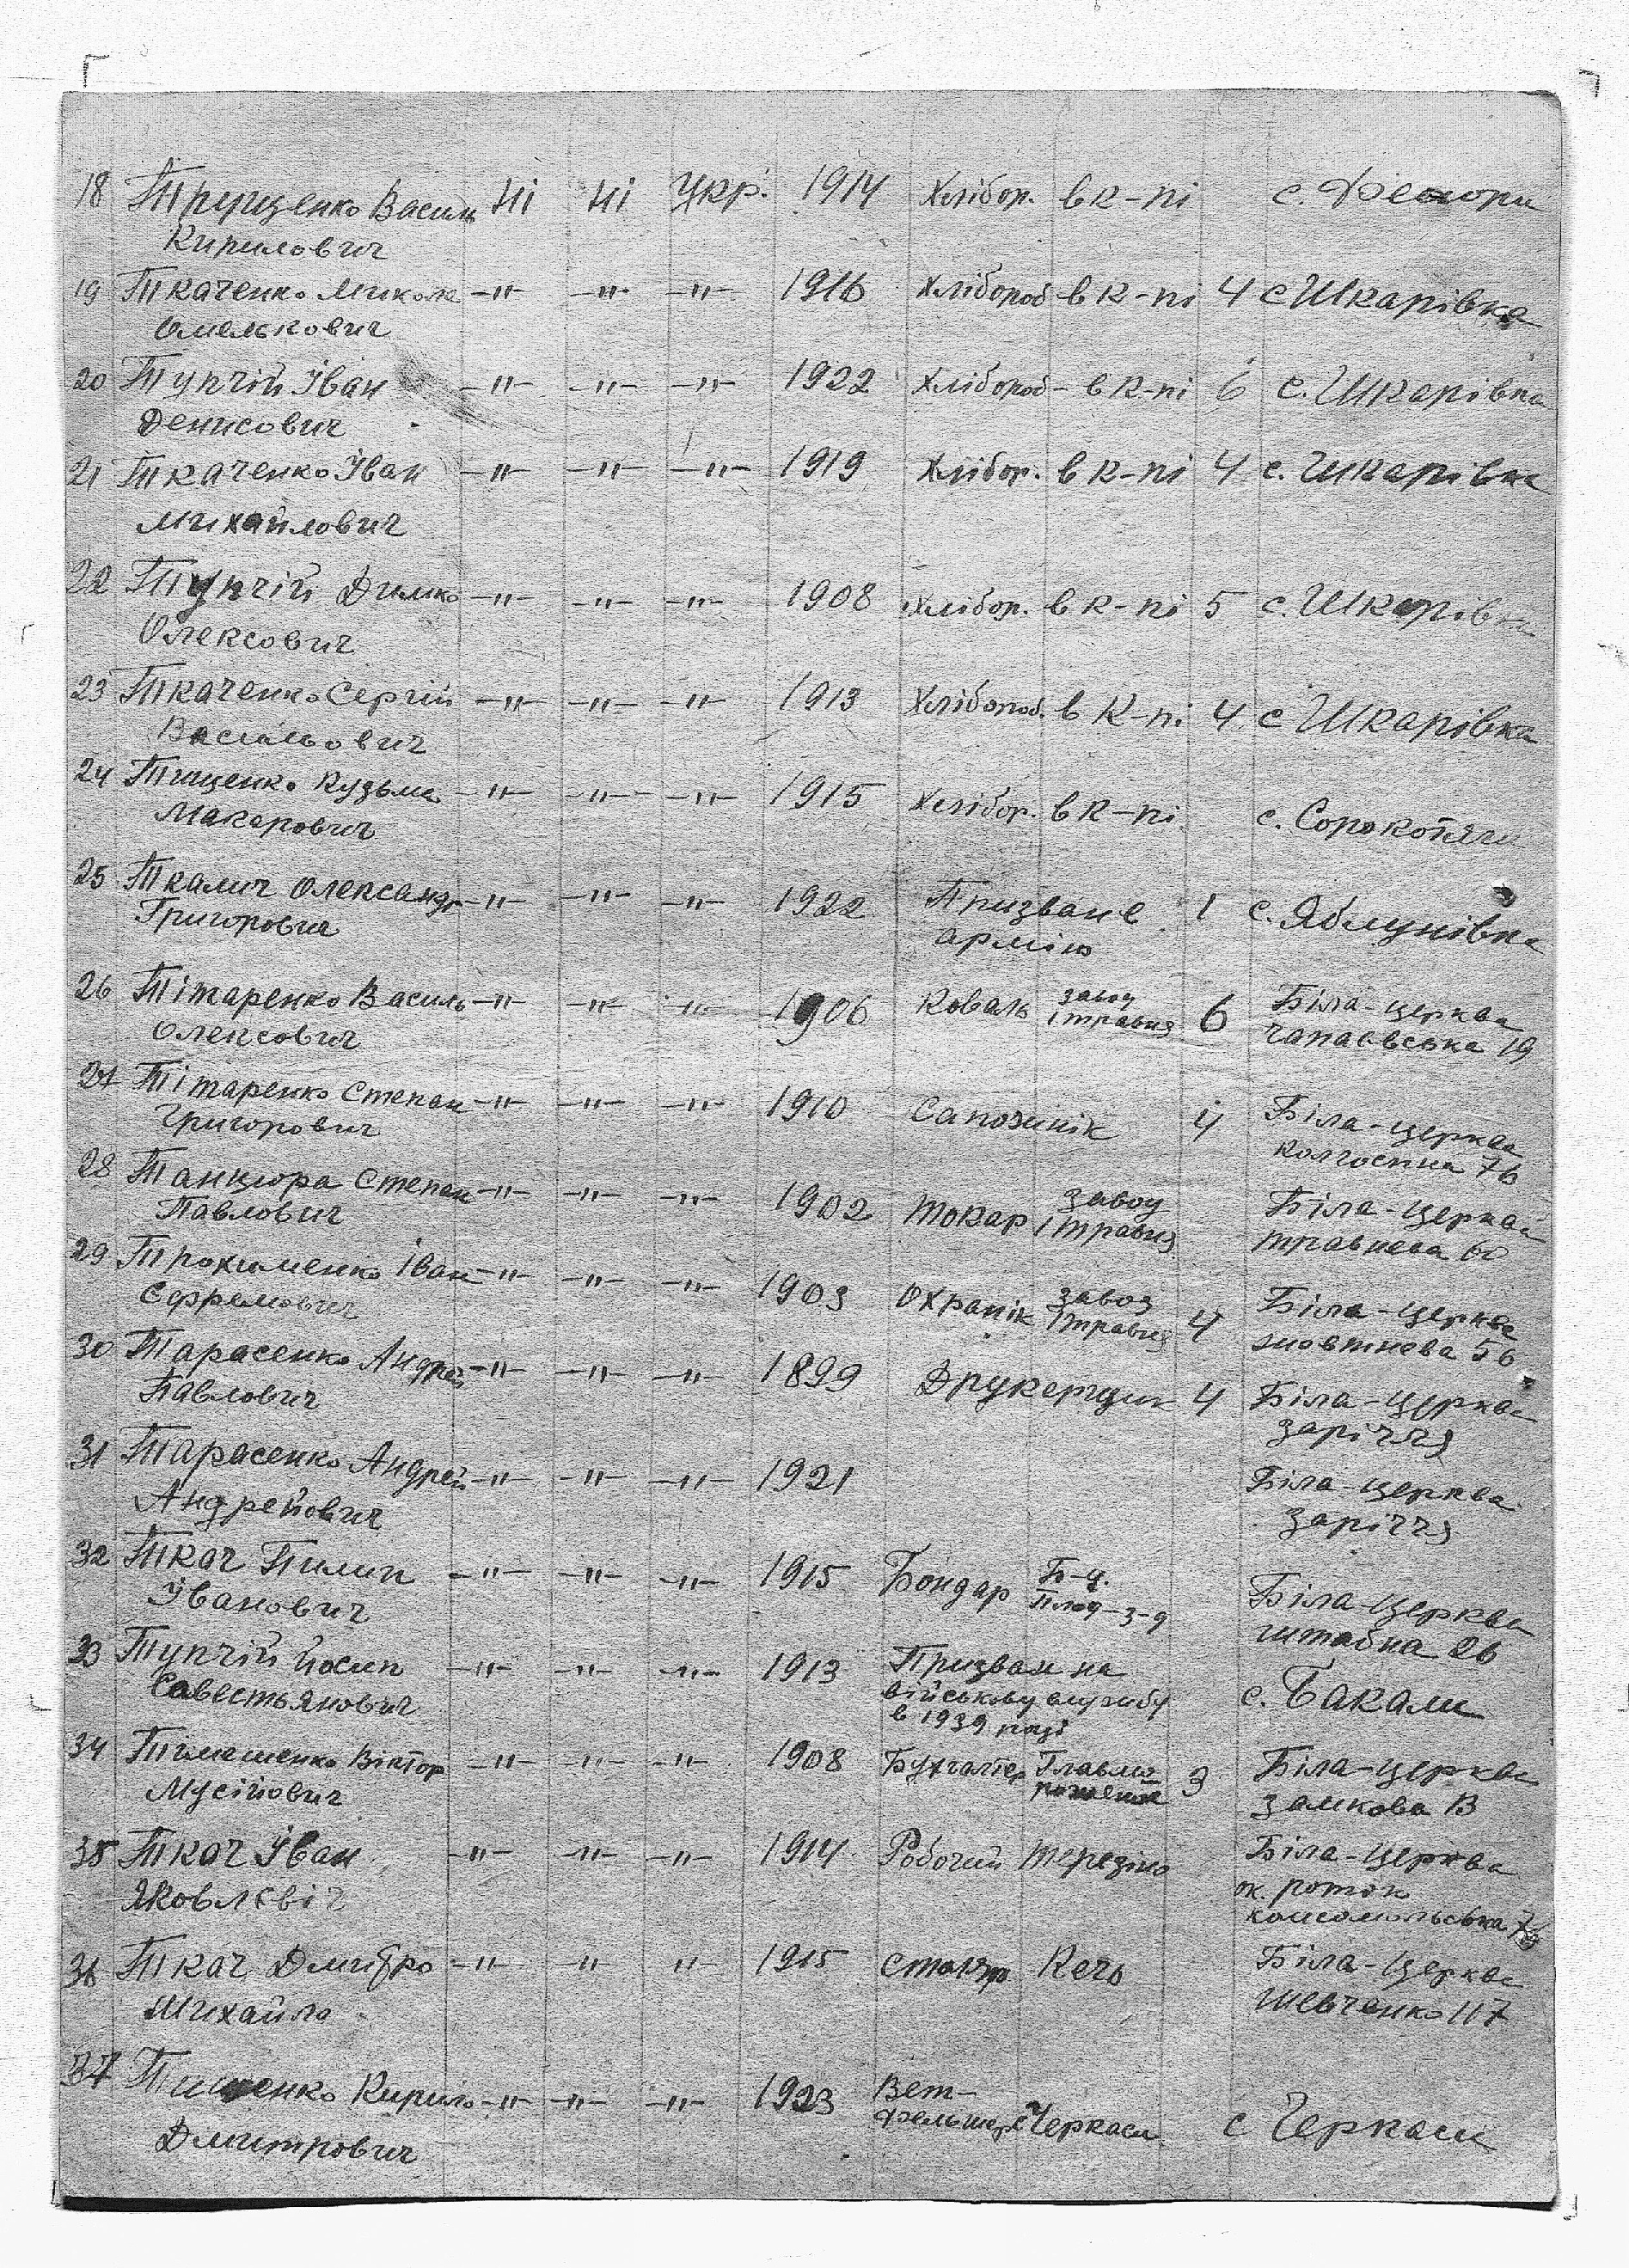 18 Трущенко Василь Ні Ні Укр. 1914 Хлібор. в к-пі с.
Кирилович
19 Ткаченко Микола -"- -"- -"- 1916 Хлібороб в к-пі 4 с Шкарівка
Омелькович
20 Тупчій Іван -"- -"- -"- 1922 Хлібороб- в к-пі 6 с. Шкарівка
Денисович
21 Ткаченко Іван -"- -"- -"- 1919 Хлібор. в к-пі 4 с. Шкарівка
Михайлович
22 Тупчій Димко -"- -"- -"- 1908 Хлібор. в к-пі 5 с. Шкарівка
Олексович
23 Ткаченко Сергій -"- -"- -"- 1913 Хлібороб. в к-пі 4 с Шкарівка
Васильович
24 Тищенко Кузьма -"- -"- -"- 1915 Хлібор. в к-пі с. Сорокотяги
Макарович
25 Ткалич Олександр -"- -"- -"- 1922 Призван в 1 с. Яблунівка
Григорович армію
26 Тітаренко Василь -"- -"- -"- 1906 Коваль завод 6 Біла-церква
Олексович 1 травня чапаєвська 19
27 Тітаренко Степан -"- -"- -"- 1910 Сапожнік 4 Біла-церква
Григорович колгоспна 76
28 Танцюра Степан -"- -"- -"- 1902 Токар завод Біла-церква
Павлович 1 травня травнева 60
29 Трохименко Іван -"- -"- -"- 1903 Охранік завод 4 Біла-церква
Єфремович 1 травня жовтнева 56
30 Тарасенко Андрей -"- -"- -"- 1899 Друкерщик 4 Біла-церква
Павлович заріччя
31 Тарасенко Андрей -"- -"- -"- 1921 Біла-церква
Андрейович заріччя
32 Ткач Пилип -"- -"- -"- 1915 Бондар Б-ц. Біла-церква
Іванович Плод-з-д штабна 26
33 Тупчій йосип -"- -"- -"- 1913 Призван на с. Бакали
Савестьянович військову службу
в 1939 році
34 Тимошенко Віктор -"- -"- -"- 1908 Бухгалтер 3 Біла-церква
Мусійович замкова
35 Ткач Іван -"- -"- -"- 1914 Робочий Терезіно Біла-церква
Яковлєвіч ок. роток
комсомольська
36 Ткач Дмитро -"- -"- -"- 1915 Столяр Біла-церква
Михайло Шевченко 117
37 Тищенко Кирило -"- -"- -"- 1923 Вет- с Черкаси
Дмитрович фельшер Черкаси